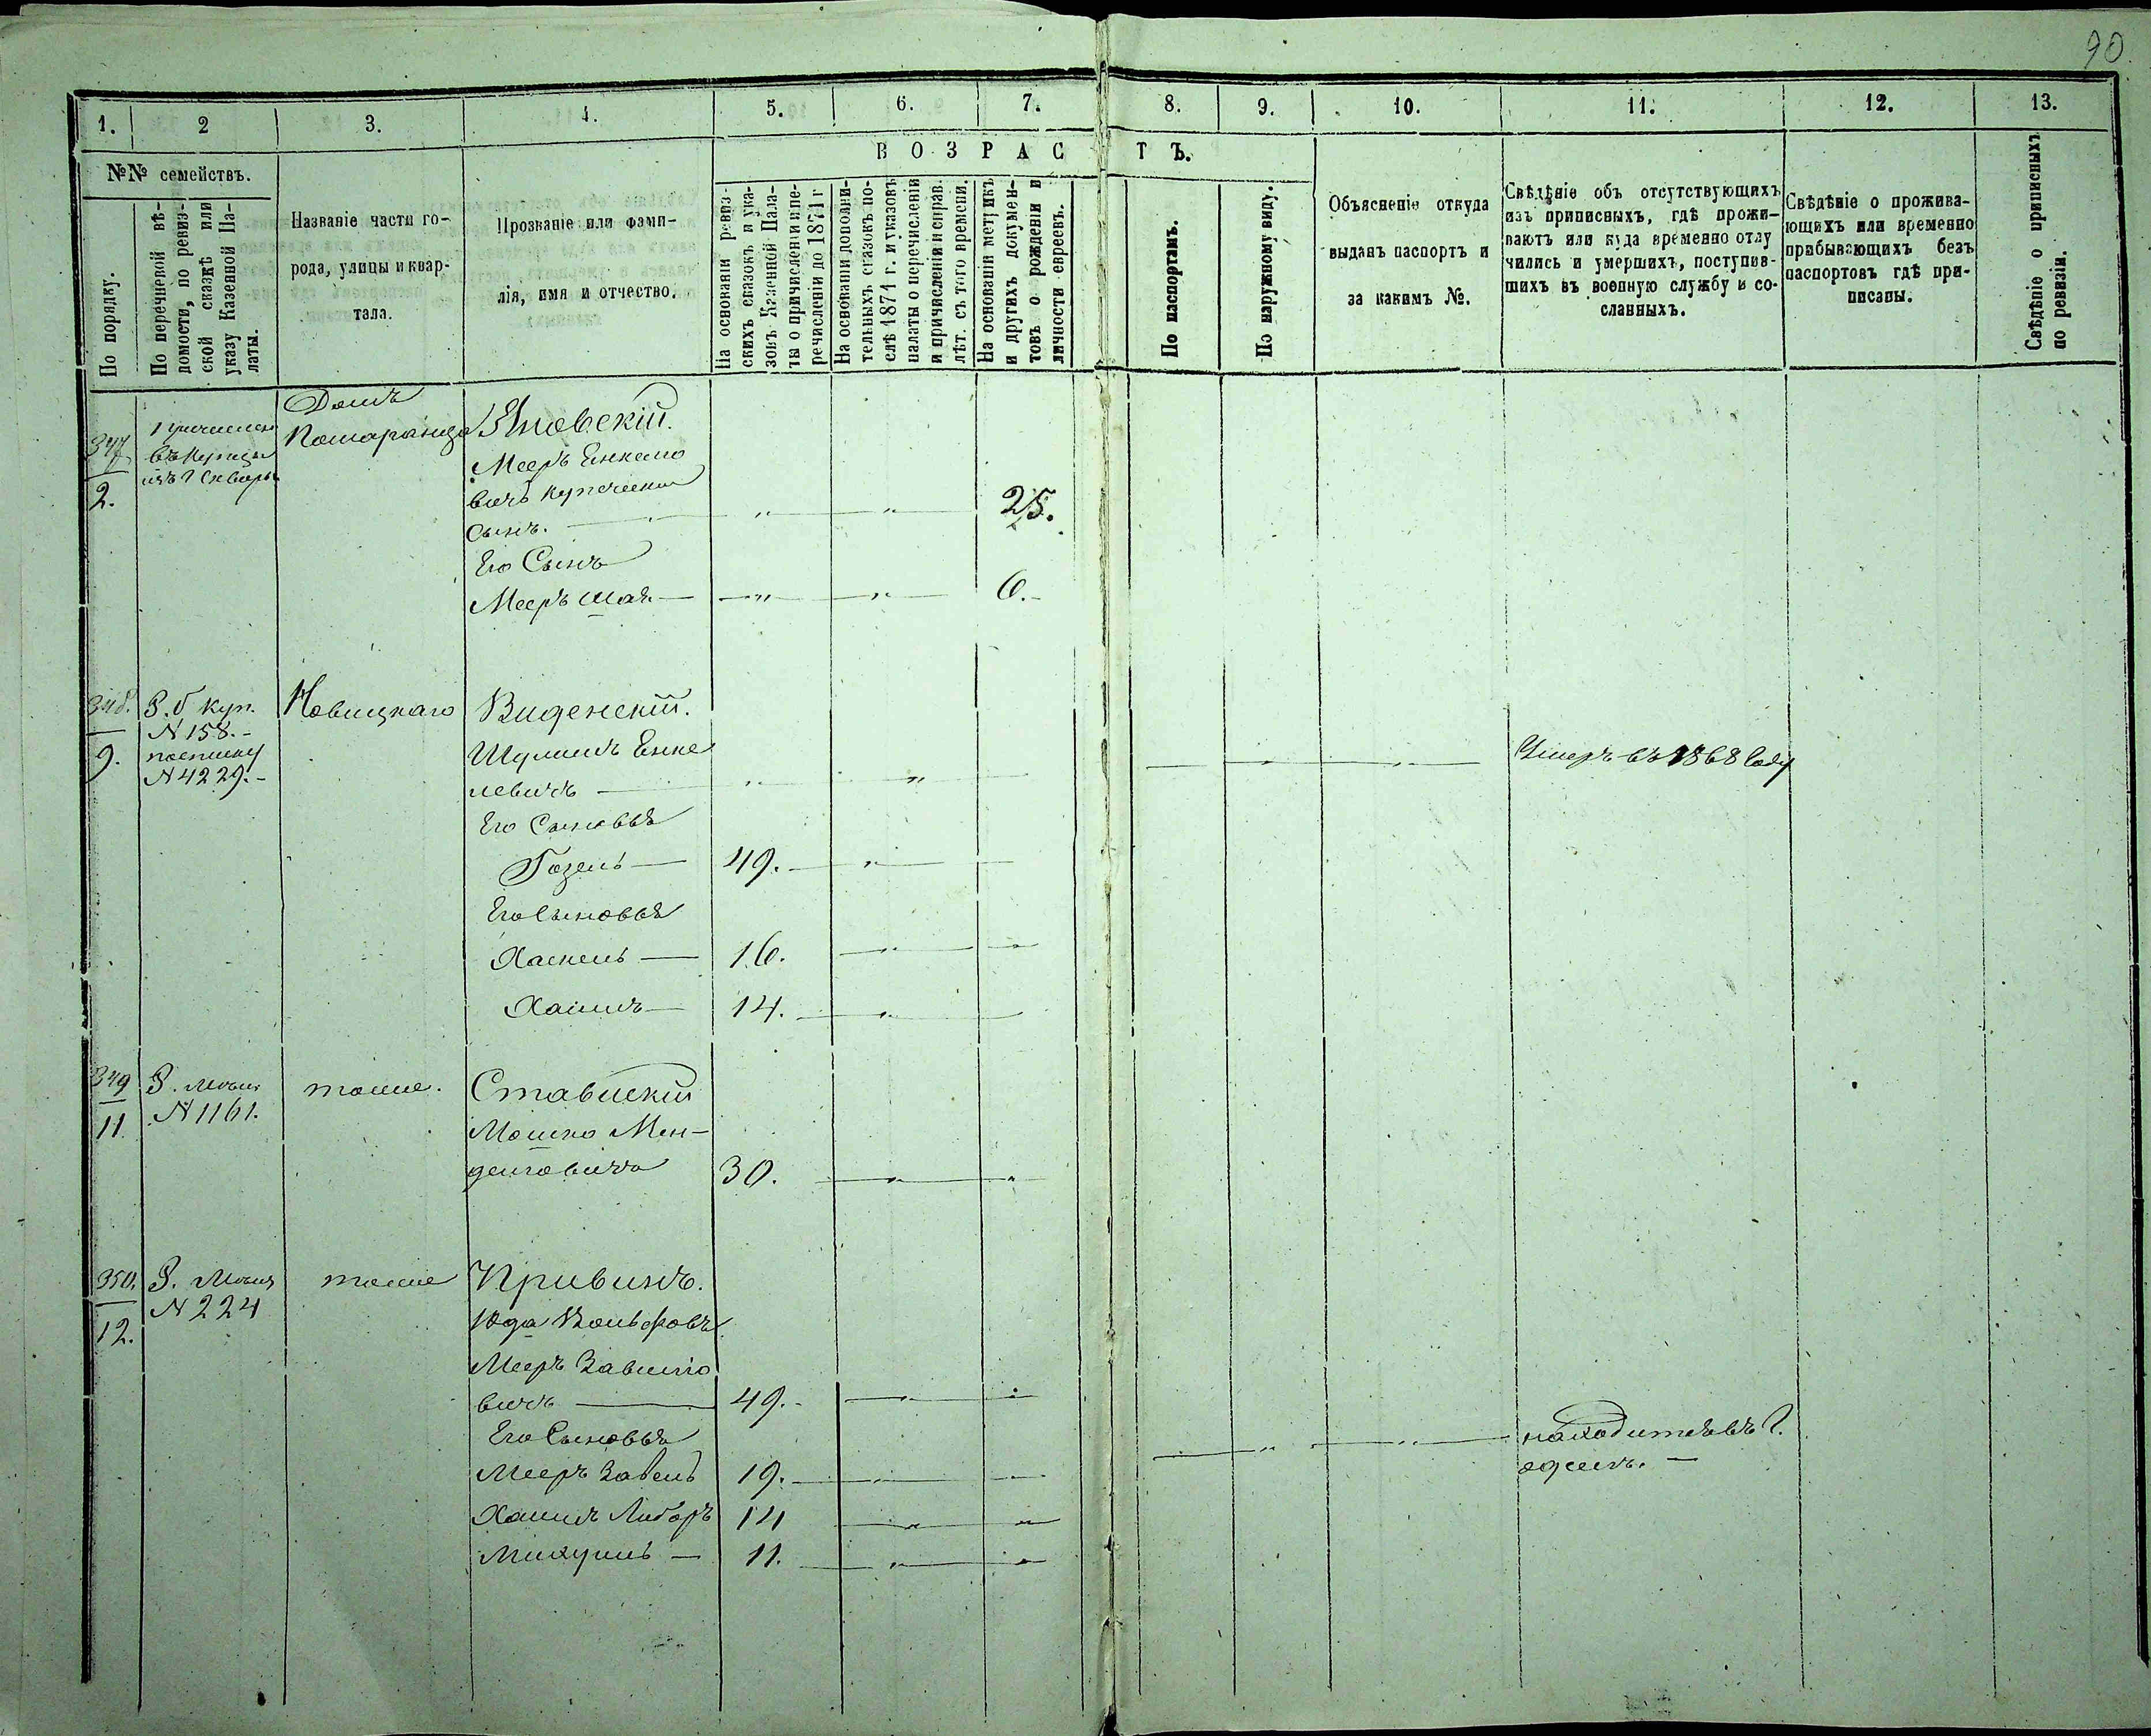 90
1. 2 3. 4. 5. 6. 7. 8. 9. 10. 11. 12. 13.
№№ семействъ.
По порядку.
По перечневой вѣ-
домости, по ревиз-
ской сказкѣ или
указу Казенной Па-
латы.
Названіе части го-
рода, улицы и квар-
тала.
Прозваніе или фами-
лія, имя и отчество.
ВОЗРАСТЪ.
На основаніи ревиз-
скихъ сказокъ и ука-
зовъ Казенной Пала-
ты о причисленіи и пе-
речисленіи до 1871 г
На основаніи дополни-
тельныхъ сказокъ по-
слѣ 1871 г. и указовъ
палаты о перечисленіи
и причисленіи и справ.
лѣт. съ того времени.
На основаніи метрикъ
и другихъ докумен-
товъ о рожденіи и
личности евреевъ.
По паспортамъ.
По наружному виду.
Объясненіе откуда
выданъ паспортъ и
за какимъ №.
Свѣдѣніе объ отсутствующихъ
изъ приписныхъ, гдѣ прожи-
ваютъ или куда временно отлу
чились и умершихъ, поступив-
шихъ въ военную службу и со-
сланныхъ.
Свѣдѣніе о прожива-
ющихъ или временно
прибывающихъ безъ
паспортовъ гдѣ при-
писаны.
Свѣдѣніе о приписныхъ
по ревизіи.
347
2.
въ Купцы
изъ г Сквиры
Домъ
Помаранца
Яновскій.
Мееръ Енкело
вичъ купеческій
сынъ. — " — " — 25.
Его Сынъ
Мееръ Шая — " — " — 6.
348.
9.
Р. б куп.
№ 158.
№ 4229.
Новицкаго
Виденскій.
Шулимъ Енке
левичъ — " — " — Умеръ въ 1868 году
Его Сыновья
Гозель — 49. — "
Его Сыновья
Хаскель — 16. — "
Хаимъ — 14. — "
349
11.
Р. мѣщ.
№ 1161.
тоже.
Ставискій
Мошко Мен-
делговичъ 30. — " — "
350.
12.
Р. мѣщ
№ 224
тоже
Кривинъ.
Юда Вольфовъ
Мееръ Завелго
вичъ — 49. — " — "
Его Сыновья
Мееръ Завель 19. — " — находится въ г.
одесѣ. —
Хаимъ Либоръ 14 — " — "
Михуиль — 11. — " — "